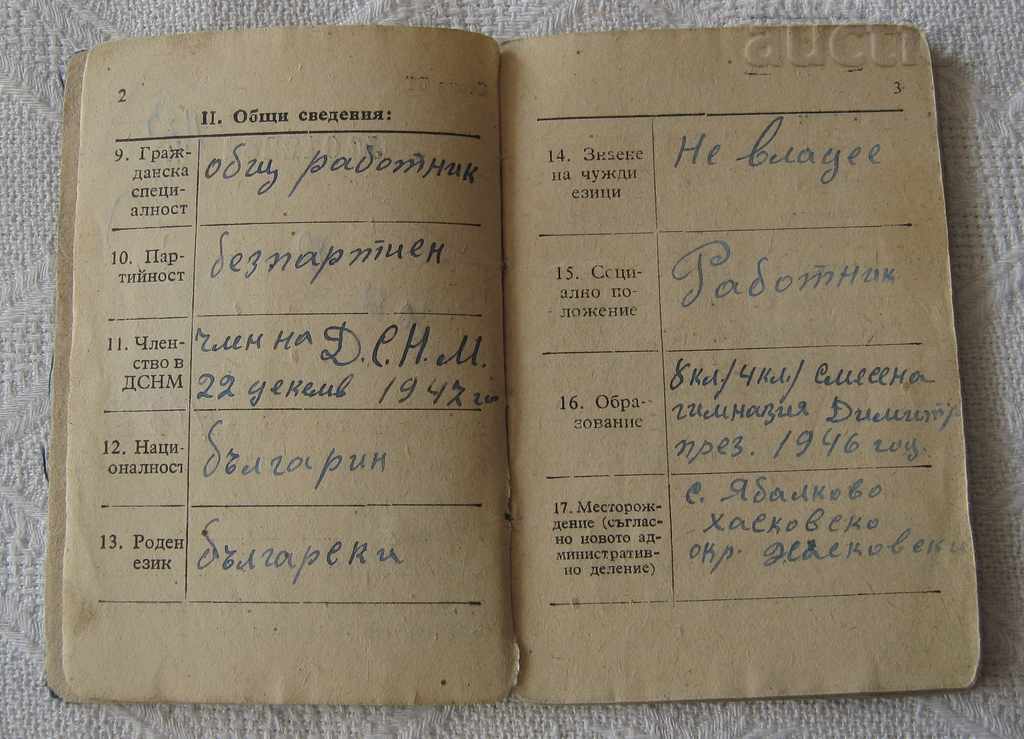 aucti
2
II. Общи сведения:
9. Граж-
данска
специ-
алност
общ работник
10. Пар-
тийност
безпартиен
11. Член-
ство в
ДСНМ
член на Д.С.Н.М.
22 декемв 1947 го
12. Наци-
оналност
българин
13. Роден
език
български
3
14. Знаене
на чужди
езици
Не владее
15. Соци-
ално по-
ложение
Работник
16. Обра-
зование
8кл/4кл/ смесена
гимназия Димитр
през. 1946 год.
17. Месторож-
дение (съглас-
но новото ад-
министратив-
но деление)
с. Ябалково
хасковско
окр. Хасковски